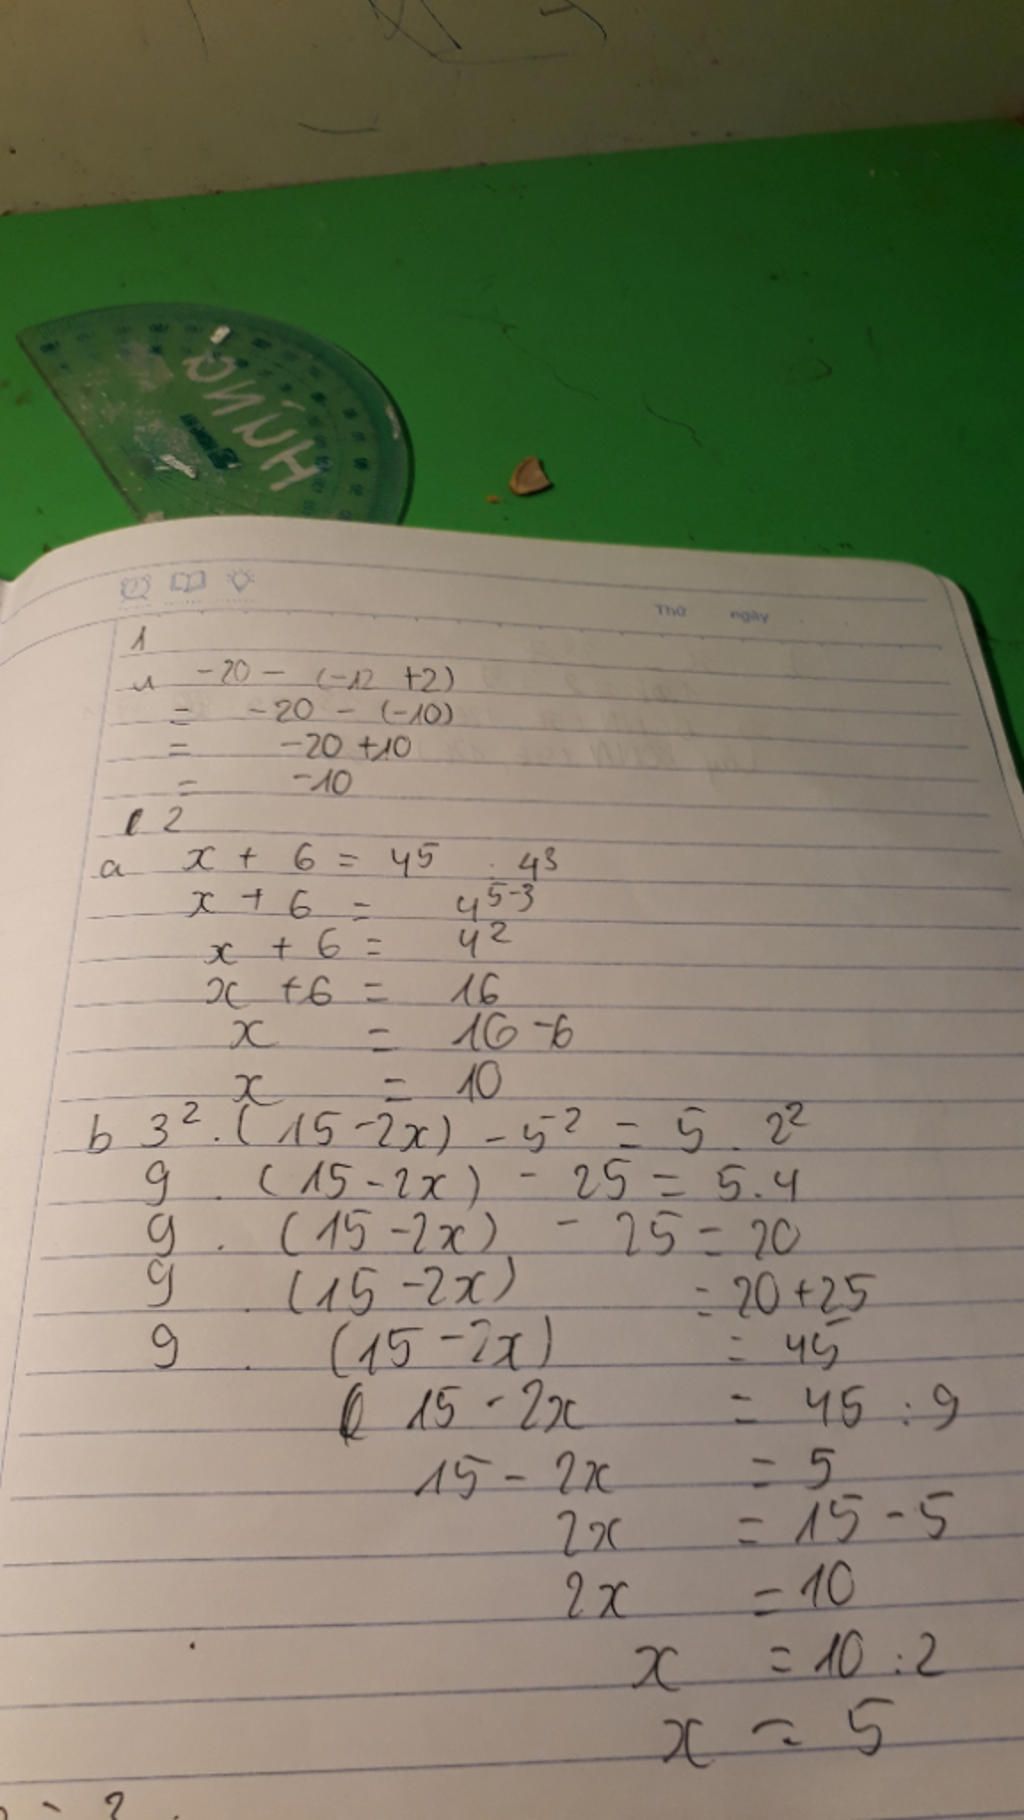 HÙNG
Thứ ngày
1
-20 - (-12 +2)
= -20 - (-10)
= -20 +10
= -10
2
a x + 6 = 4⁵ : 4³
x + 6 = 4⁵⁻³
x + 6 = 4²
x +6 = 16
x = 16 -6
x = 10
b 3² . (15 -2x) - 5² = 5 . 2²
9 . (15 - 2x) - 25 = 5.4
9 . (15 -2x) - 25 = 20
9 . (15 -2x) = 20+25
9 . (15 -2x) = 45
15 - 2x = 45 : 9
15 - 2x = 5
2x = 15 - 5
2x = 10
x = 10 : 2
x = 5